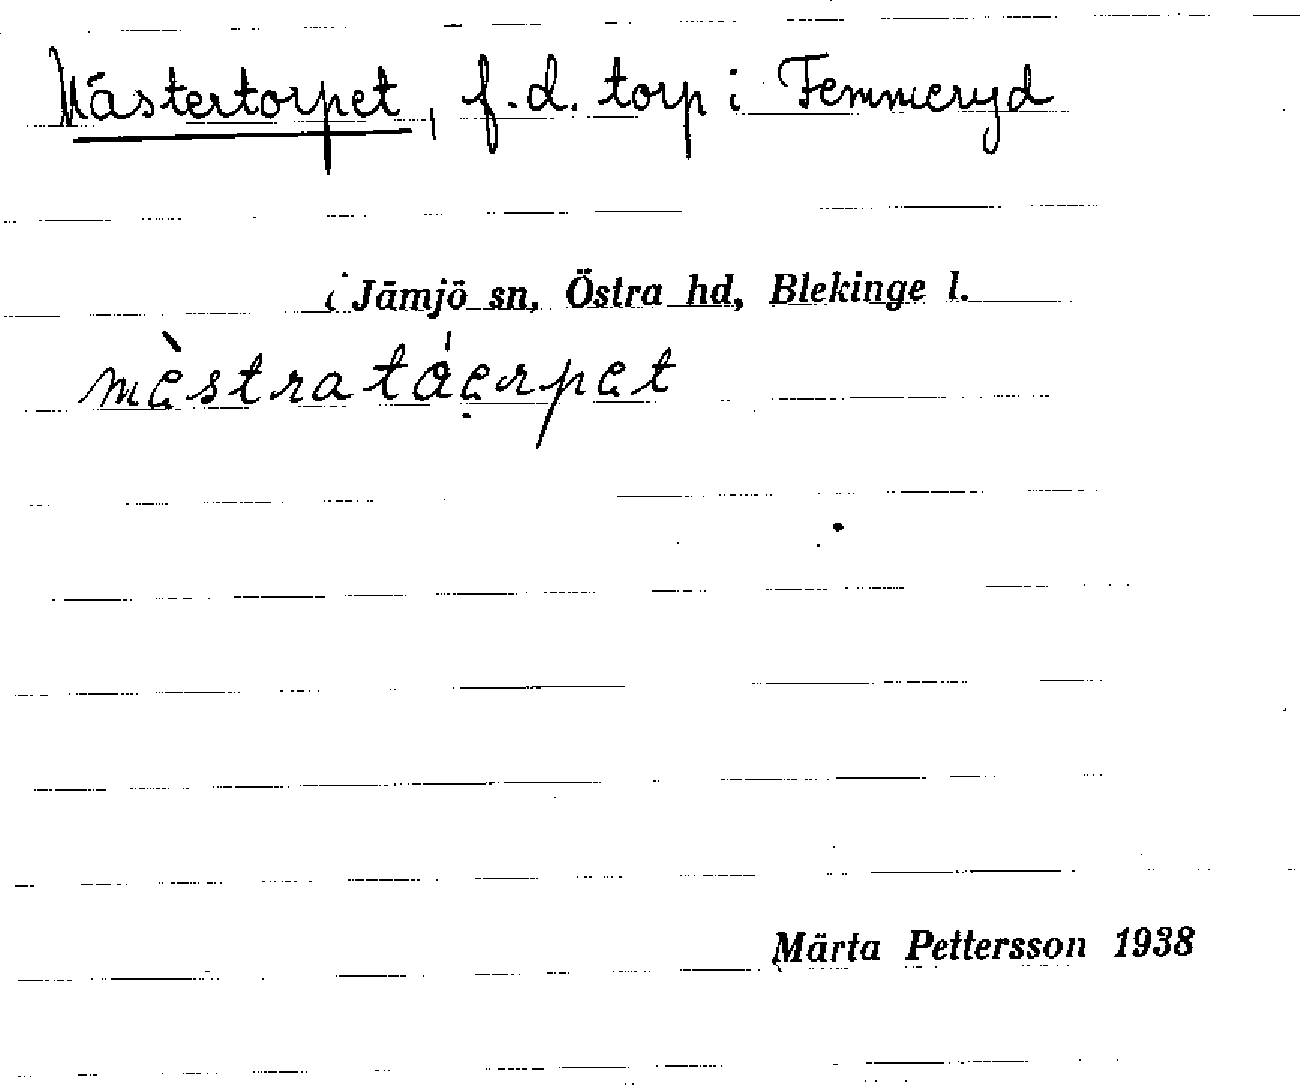 Mästertorpet, f.d. torp i Femmeryd
i Jämjö sn, Östra hd, Blekinge l.
mèstratáerpet
Märta Pettersson 1938